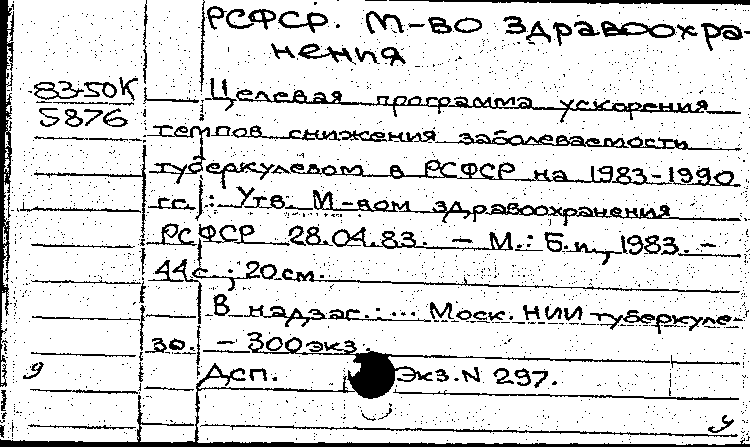 РСФСР. М-во здравоохра-
нения
83-50К
5876
Целевая программа ускорения
темпов снижения заболеваемости
туберкулезом в РСФСР на 1983-1990
гг.: Утв. М-вом здравоохранения
РСФСР 28.04.83. - М.: Б.и., 1983. -
44с.; 20см.
В надзаг.: ... Моск. НИИ туберкуле-
за. - 300экз.
Дсп. Экз. N 297.
у